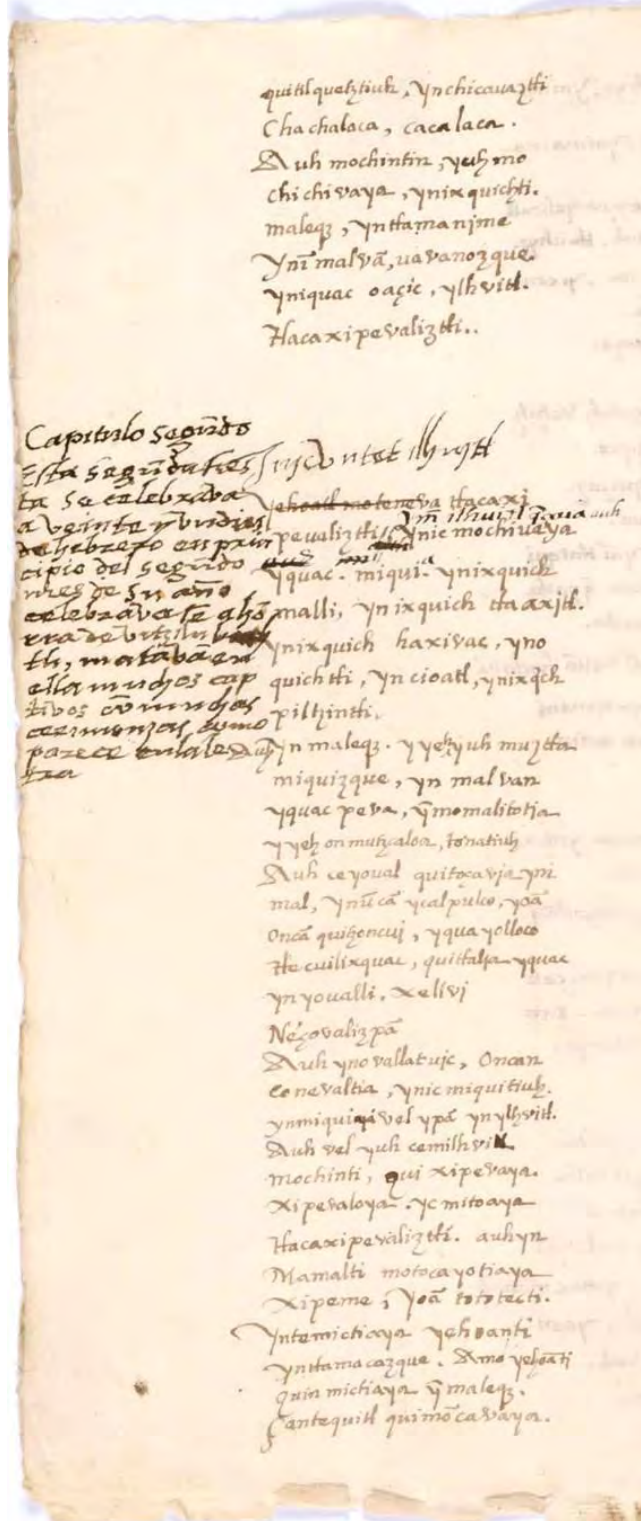 quitlquetztiuh, ynchicavaztli
Chachalaca, cacalaca.
Auh mochintin, yuh mo
chichivaya, ynixquichti.
maleq3, yntlamanjme
Yni malvã, uavanozque.
yniquac oaçic, ylhvitl.
tlacaxipevaliztli..
Capitulo segũdo
Esta segũda fies
ta se celebrava
a veinte y vn dias
de hebrero en prin
cipio del segũdo
mes de su año
celebravase a hõ
rra de
tli, matavã en
ella muchos cap
tivos cõ muchas
cerimonias como
parece en la le
tra
Inic vntet ilhuitl
yehoatl moteneva tlacaxi
pevaliztli ynic mochivaya
yquac. miquia ynixquich
malli, yn ixquich tlaaxitl.
ynixquich haxivac, yno
quichtli, yn cioatl, ynixq̃ch
piltzintli.
yn maleq3. yyeh yuh muztla
miquizque, yn malvan
yquac peva, ỹmomalitotia
yyeh onmutzcaloa, tonatiuh
Auh ceyoval quitoçavia yni
mal, ynũcã ycalpulco, yoã
Oncã quitzoncuj, yquayolloco
tlecuilixquac, quitlalia yquac
yn yovalli. xelivi
Neçovalizpã
Auh ynovallatuic, Oncan
conevaltia, ynic miquitiuh.
ynmiquia vel ypã ynylhvitl.
Auh vel yuh cemilhvitl
mochinti, quixipevaya.
Xipevaloya. yc mitoaya
tlacaxipevaliztli. auhyn
Mamalti motocayotiaya
xipeme, yoã tototecti.
Yntemictiaya yehoanti
yntlamacazque. Amo yehoãti
quin mictiaya ỹ maleq3.
çantequitl quimõcavaya.